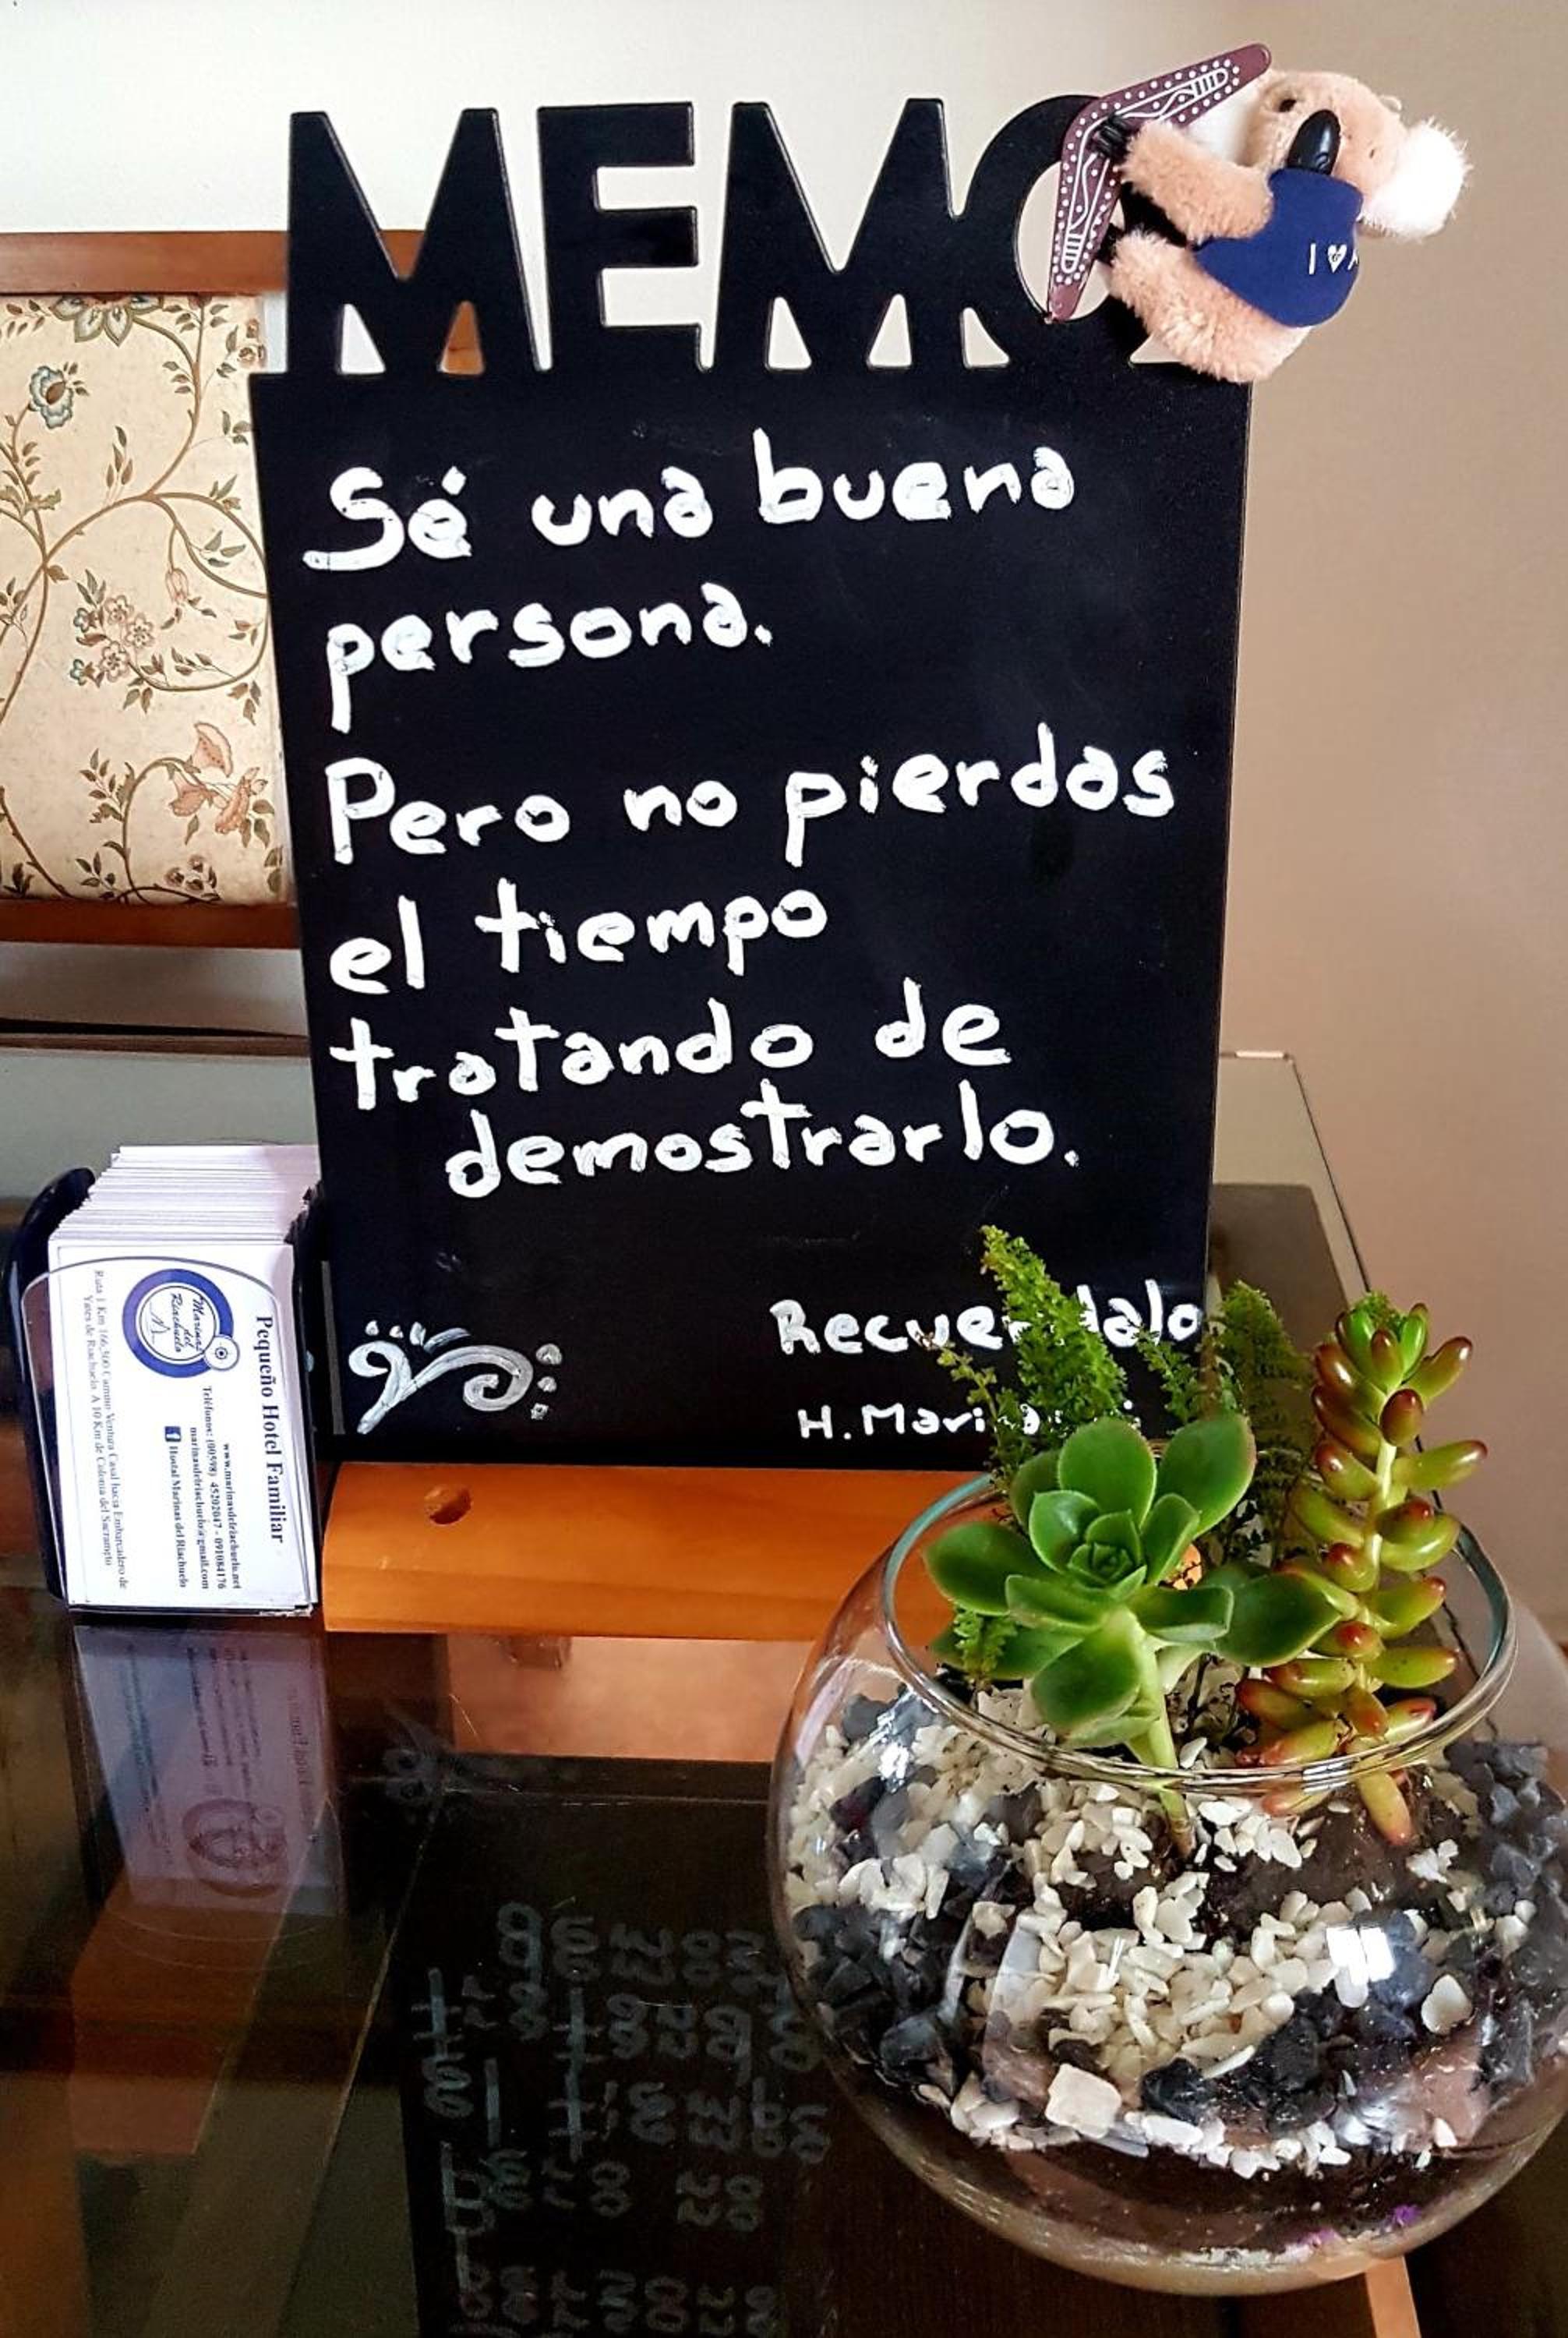 MEMO
I ♥ A
Sé una buena
persona.
Pero no pierdas
el tiempo
tratando de
demostrarlo.
Recuerdalo
H. Marinas
Pequeño Hotel Familiar
Marinas
del
Riachuelo
www.marinasdelriachuelo.net
Teléfonos: (00598) 45202047 - 091084176
marinasdelriachuelo@gmail.com
Hostal Marinas del Riachuelo
Ruta 1 Km 166,500 Camino Ventura Casal hacia Embarcadero de
Yates de Riachuelo. A 10 Km de Colonia del Sacramento